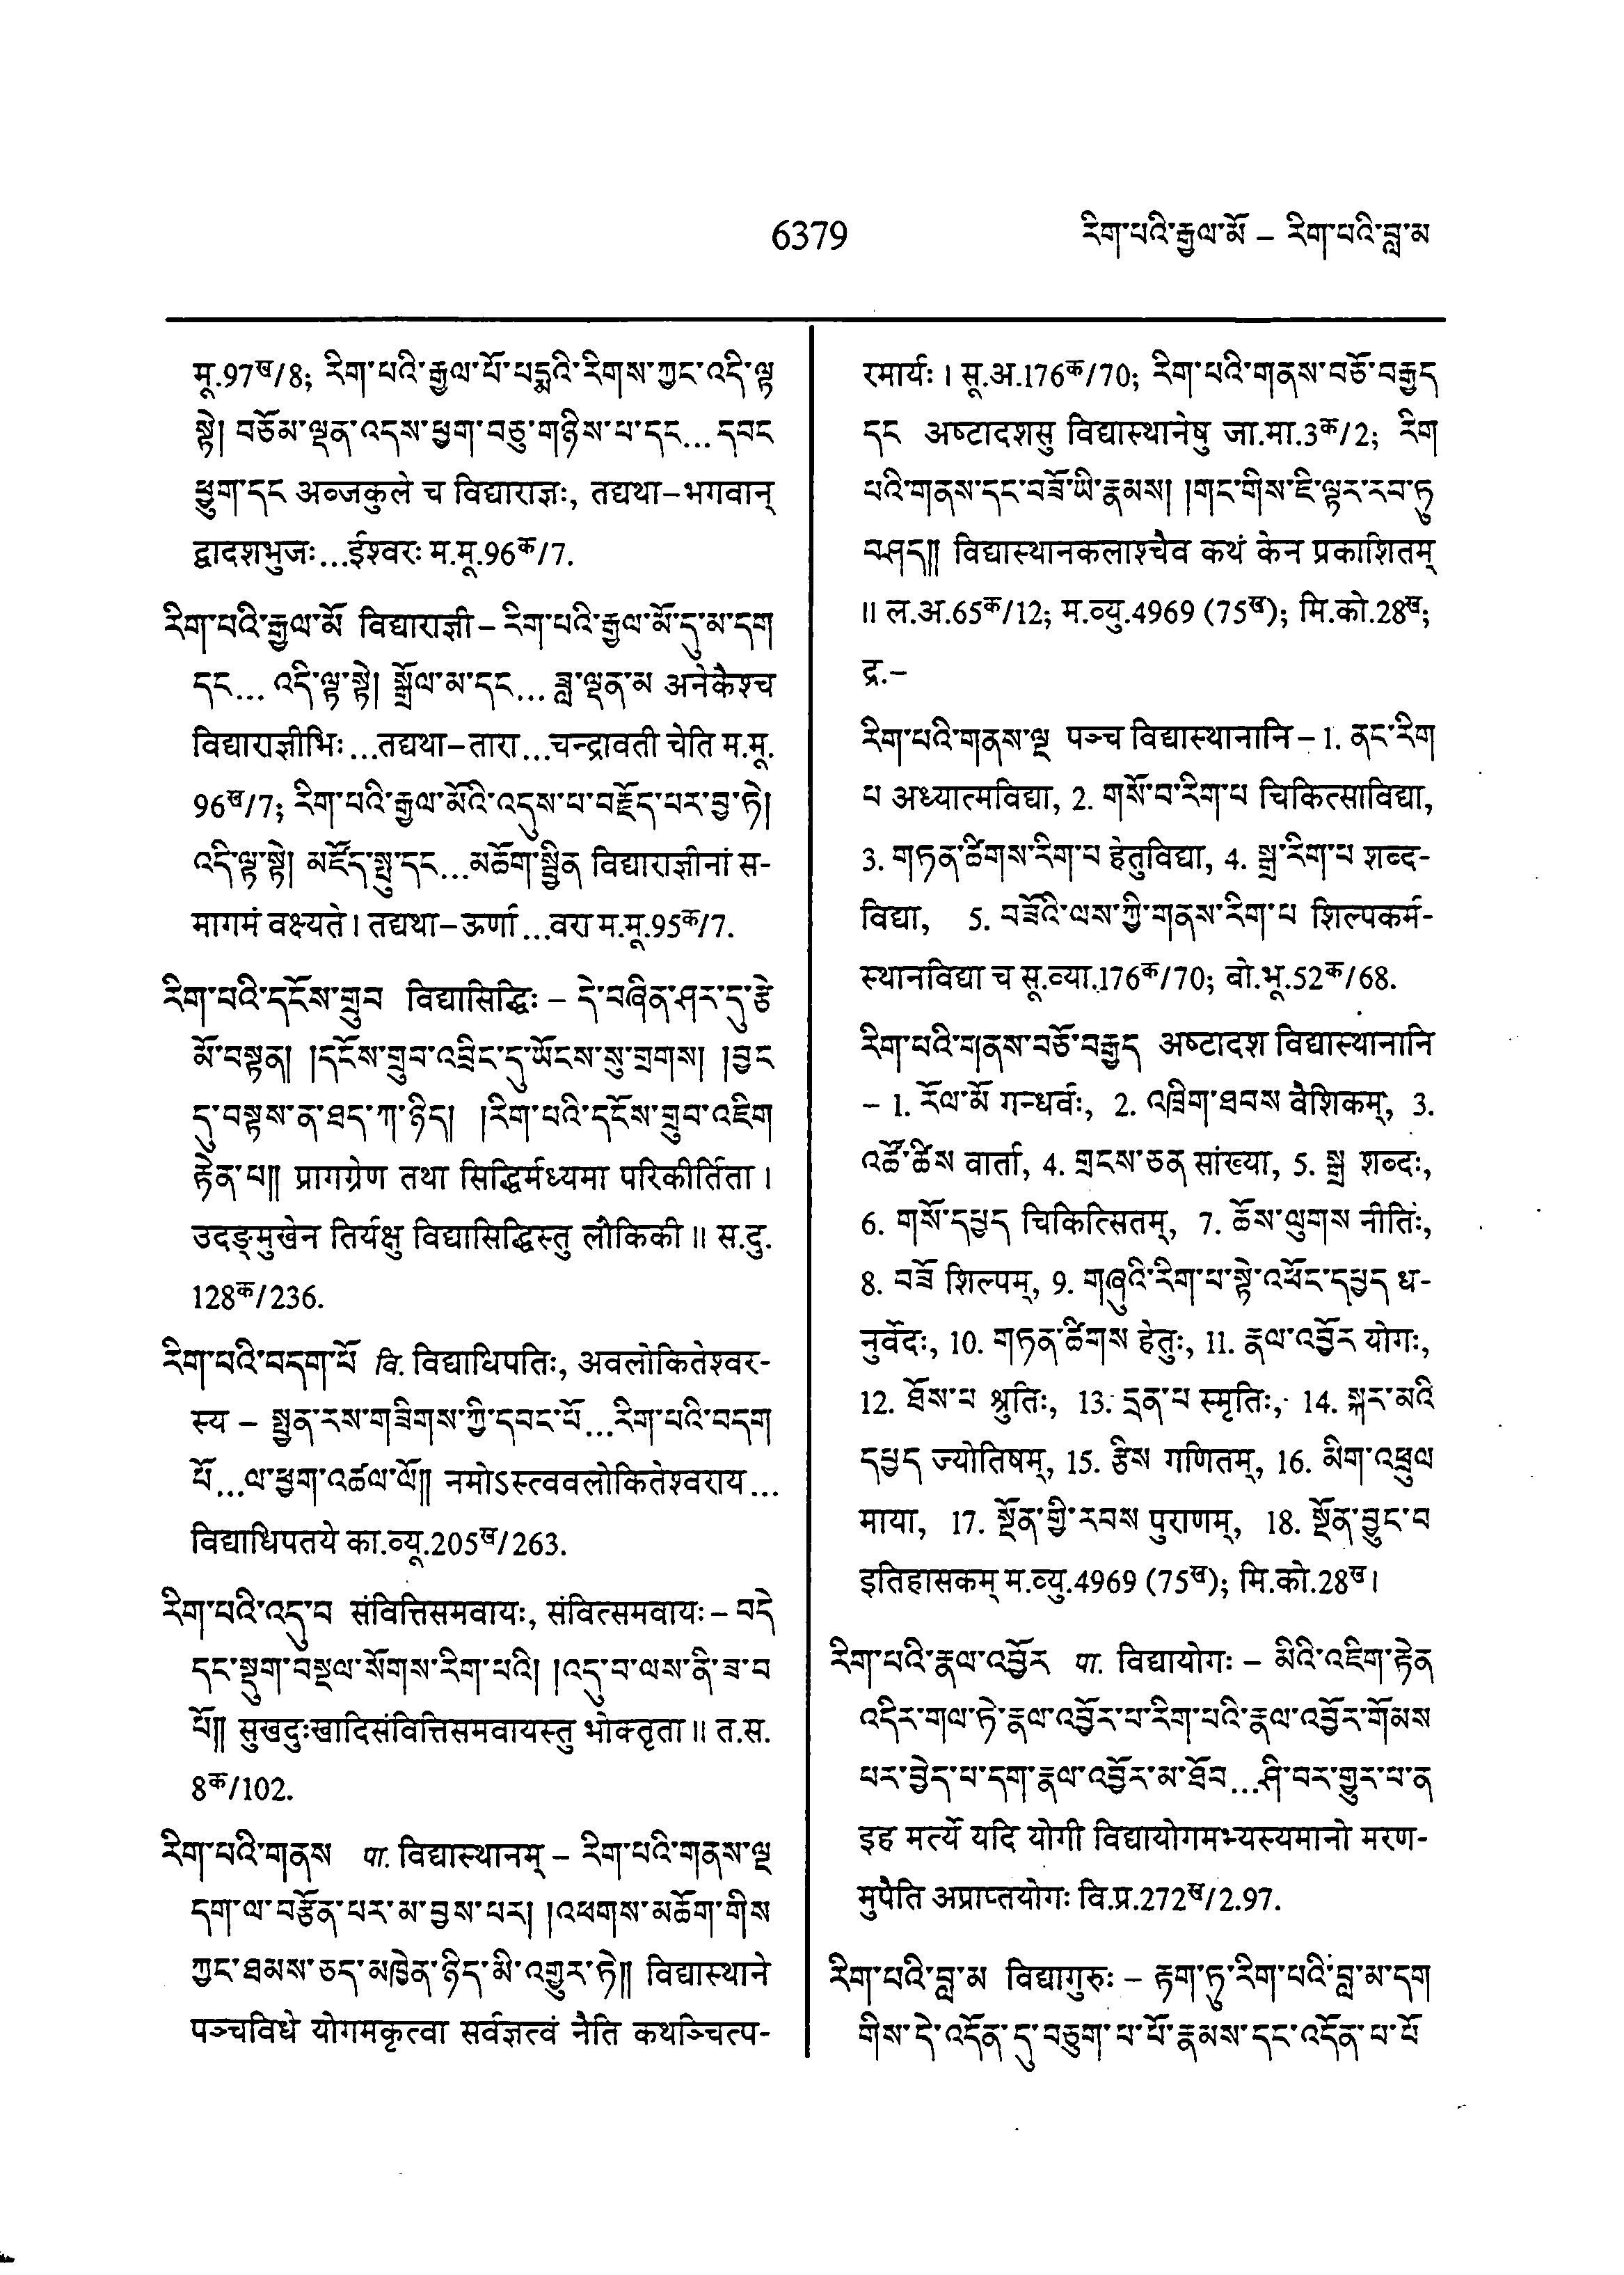 6379
རིག་པའི་རྒྱལ་མོ – རིག་པའི་བླ་མ
मू.97ख/8; རིག་པའི་རྒྱལ་པོ་པདྨའི་རིགས་ཀྱང་འདི་ལྟ
སྟེ། བཅོམ་ལྡན་འདས་ཕྱག་བཅུ་གཉིས་པ་དང... དབང
ཕྱུག་དང अब्जकुले च विद्याराज्ञः, तद्यथा–भगवान्
द्वादशभुजः...ईश्वरः म.मू.96क/7.
རིག་པའི་རྒྱལ་མོ विद्याराज्ञी – རིག་པའི་རྒྱལ་མོ་དུ་མ་དག
དང... འདི་ལྟ་སྟེ། སྒྲོལ་མ་དང... ཟླ་ལྡན་མ अनेकैश्च
विद्याराज्ञीभिः...तद्यथा–तारा...चन्द्रावती चेति म.मू.
96ख/7; རིག་པའི་རྒྱལ་མོའི་འདུས་པ་བརྗོད་པར་བྱ་ཏེ།
འདི་ལྟ་སྟེ། མཛོད་སྤུ་དང...མཆོག་སྦྱིན विद्याराज्ञीनां स-
मागमं वक्ष्यते। तद्यथा–ऊर्णा...वरा म.मू.95क/7.
རིག་པའི་དངོས་གྲུབ विद्यासिद्धिः – དེ་བཞིན་ཤར་དུ་རྩེ
མོ་བསྟན། །དངོས་གྲུབ་འབྲིང་དུ་ཡོངས་སུ་གྲགས། །བྱང
དུ་བལྟས་ན་ཐད་ཀ་ཉིད། །རིག་པའི་དངོས་གྲུབ་འཇིག
རྟེན་པ།། प्रागग्रेण तथा सिद्धिर्मध्यमा परिकीर्तिता।
उदङ्मुखेन तिर्यक्षु विद्यासिद्धिस्तु लौकिकी॥ स.दु.
128क/236.
རིག་པའི་བདག་པོ वि. विद्याधिपतिः, अवलोकितेश्वर-
स्य – སྤྱན་རས་གཟིགས་ཀྱི་དབང་པོ...རིག་པའི་བདག
པོ...ལ་ཕྱག་འཚལ་ལོ།། नमोऽस्त्ववलोकितेश्वराय...
विद्याधिपतये का.व्यू.205ख/263.
རིག་པའི་འདུ་བ संवित्तिसमवायः, संवित्समवायः – བདེ
དང་སྡུག་བསྔལ་སོགས་རིག་པའི། །འདུ་བ་ལས་ནི་ཟ་བ
པོ།། सुखदुःखादिसंवित्तिसमवायस्तु भोक्तृता॥ त.स.
8क/102.
རིག་པའི་གནས पा. विद्यास्थानम् – རིག་པའི་གནས་ལྔ
དག་ལ་བརྩོན་པར་མ་བྱས་པར། །འཕགས་མཆོག་གིས
ཀྱང་ཐམས་ཅད་མཁྱེན་ཉིད་མི་འགྱུར་ཏེ།། विद्यास्थाने
पञ्चविधे योगमकृत्वा सर्वज्ञत्वं नैति कथञ्चित्प-
रमार्यः। सू.अ.176क/70; རིག་པའི་གནས་བཅོ་བརྒྱད
དང अष्टादशसु विद्यास्थानेषु जा.मा.3क/2; རིག
པའི་གནས་དང་བཟོ་ཡི་རྣམས། །གང་གིས་ཇི་ལྟར་རབ་ཏུ
བཤད།། विद्यास्थानकलाश्चैव कथं केन प्रकाशितम्
॥ ल.अ.65क/12; म.व्यु.4969 (75ख); मि.को.28ख;
द्र.–
རིག་པའི་གནས་ལྔ पञ्च विद्यास्थानानि – 1. ནང་རིག
པ अध्यात्मविद्या, 2. གསོ་བ་རིག་པ चिकित्साविद्या,
3. གཏན་ཚིགས་རིག་པ हेतुविद्या, 4. སྒྲ་རིག་པ शब्द-
विद्या, 5. བཟོའི་ལས་ཀྱི་གནས་རིག་པ शिल्पकर्म-
स्थानविद्या च सू.व्या.176क/70; बो.भू.52क/68.
རིག་པའི་གནས་བཅོ་བརྒྱད अष्टादश विद्यास्थानानि
– 1. རོལ་མོ गन्धर्वः, 2. འཁྲིག་ཐབས वैशिकम्, 3.
འཚོ་ཚིས वार्ता, 4. གྲངས་ཅན सांख्या, 5. སྒྲ शब्दः,
6. གསོ་དཔྱད चिकित्सितम्, 7. ཆོས་ལུགས नीतिः,
8. བཟོ शिल्पम्, 9. གཞུའི་རིག་པ་སྟེ་འཕོང་དཔྱད ध-
नुर्वेदः, 10. གཏན་ཚིགས हेतुः, 11. རྣལ་འབྱོར योगः,
12. ཐོས་པ श्रुतिः, 13. དྲན་པ स्मृतिः, 14. སྐར་མའི
དཔྱད ज्योतिषम्, 15. རྩིས गणितम्, 16. མིག་འཕྲུལ
माया, 17. སྔོན་གྱི་རབས पुराणम्, 18. སྔོན་བྱུང་བ
इतिहासकम् म.व्यु.4969 (75ख); मि.को.28ख।
རིག་པའི་རྣལ་འབྱོར पा. विद्यायोगः – མིའི་འཇིག་རྟེན
འདིར་གལ་ཏེ་རྣལ་འབྱོར་པ་རིག་པའི་རྣལ་འབྱོར་གོམས
པར་བྱེད་པ་དག་རྣལ་འབྱོར་མ་ཐོབ...ཤི་བར་གྱུར་པ་ན
इह मर्त्ये यदि योगी विद्यायोगमभ्यस्यमानो मरण-
मुपैति अप्राप्तयोगः वि.प्र.272ख/2.97.
རིག་པའི་བླ་མ विद्यागुरुः – རྟག་ཏུ་རིག་པའི་བླ་མ་དག
གིས་དེ་འདོན་དུ་བཅུག་པ་པོ་རྣམས་དང་འདོན་པ་པོ